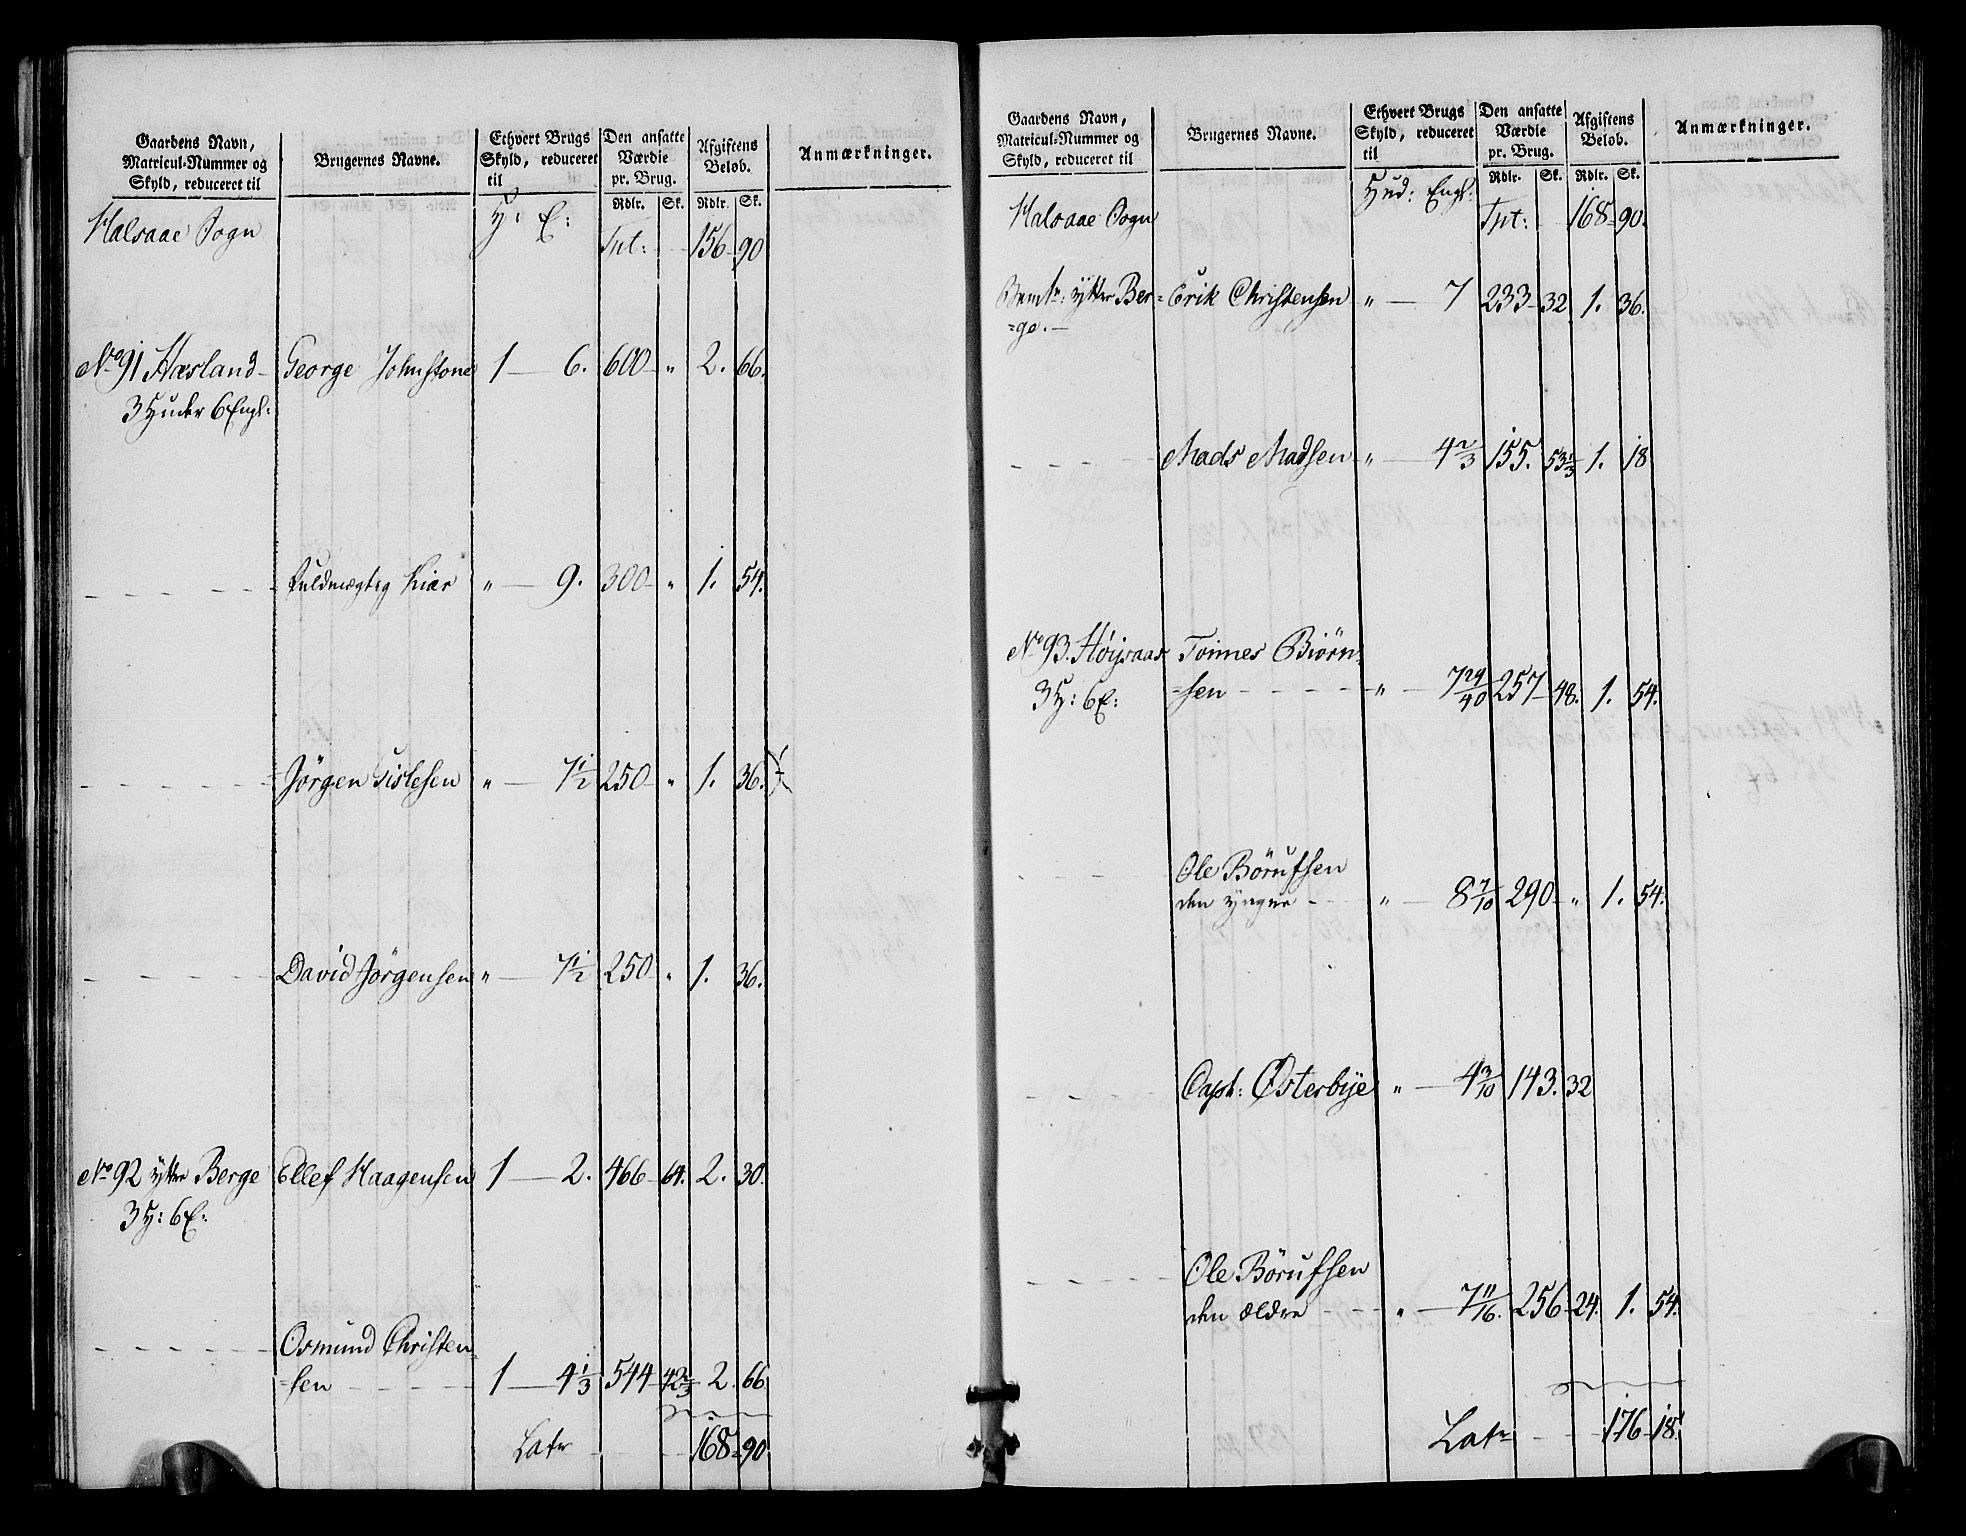 Gaardens Navn, Matricul-Nummer og Skyld, reduceret til | Brugernes Navne. | Ethvert Brugs Skyld, reduceret til | Den ansatte Værdie pr. Brug. Rdlr. Sk. | Afgiftens Beløb. Rdlr. Sk. | Anmærkninger.
Halsaae Sogn H: E: Tpt: 156 90
No 91 Hæsland George Johnstone 1 6. 600 " 2. 66.
3 Huder 6 Engl:
Fuldmægtig Kiær " 9. 300 " 1. 54.
Jörgen Gislesen " 7½ 250 " 1. 36.
David Jörgensen " 7½ 250 " 1. 36.
No 92 ytter Berge Ellef Haagensen 1 2. 466 64. 2. 30.
3 H: 6 E:
Osmund Christen=
=sen 1 4 1/3 544 42 2/3 2. 66
Latr 168 90
Gaardens Navn, Matricul-Nummer og Skyld, reduceret til | Brugernes Navne. | Ethvert Brugs Skyld, reduceret til | Den ansatte Værdie pr. Brug. Rdlr. Sk. | Afgiftens Beløb. Rdlr. Sk. | Anmærkninger.
Halsaae Sogn Hud: Engl: Tpt: 168 90.
ytter Ber= Erik Christensen " 7 233 32. 1. 36.
=ge.
Mads Madsen " 4 2/3 155. 53 1/3 1. 18
No 93. Höysaas Tönnes Biörn=
3 H: 6 E: =sen " 7 29/40 257 48. 1. 54.
Ole Börufsen
den yngre " 8 7/10 290 " 1. 54.
Capt: Østerbye " 4 3/10 143. 32
Ole Börufsen
den ældre " 7 11/16. 256 24. 1. 54.
Latr 176 18.